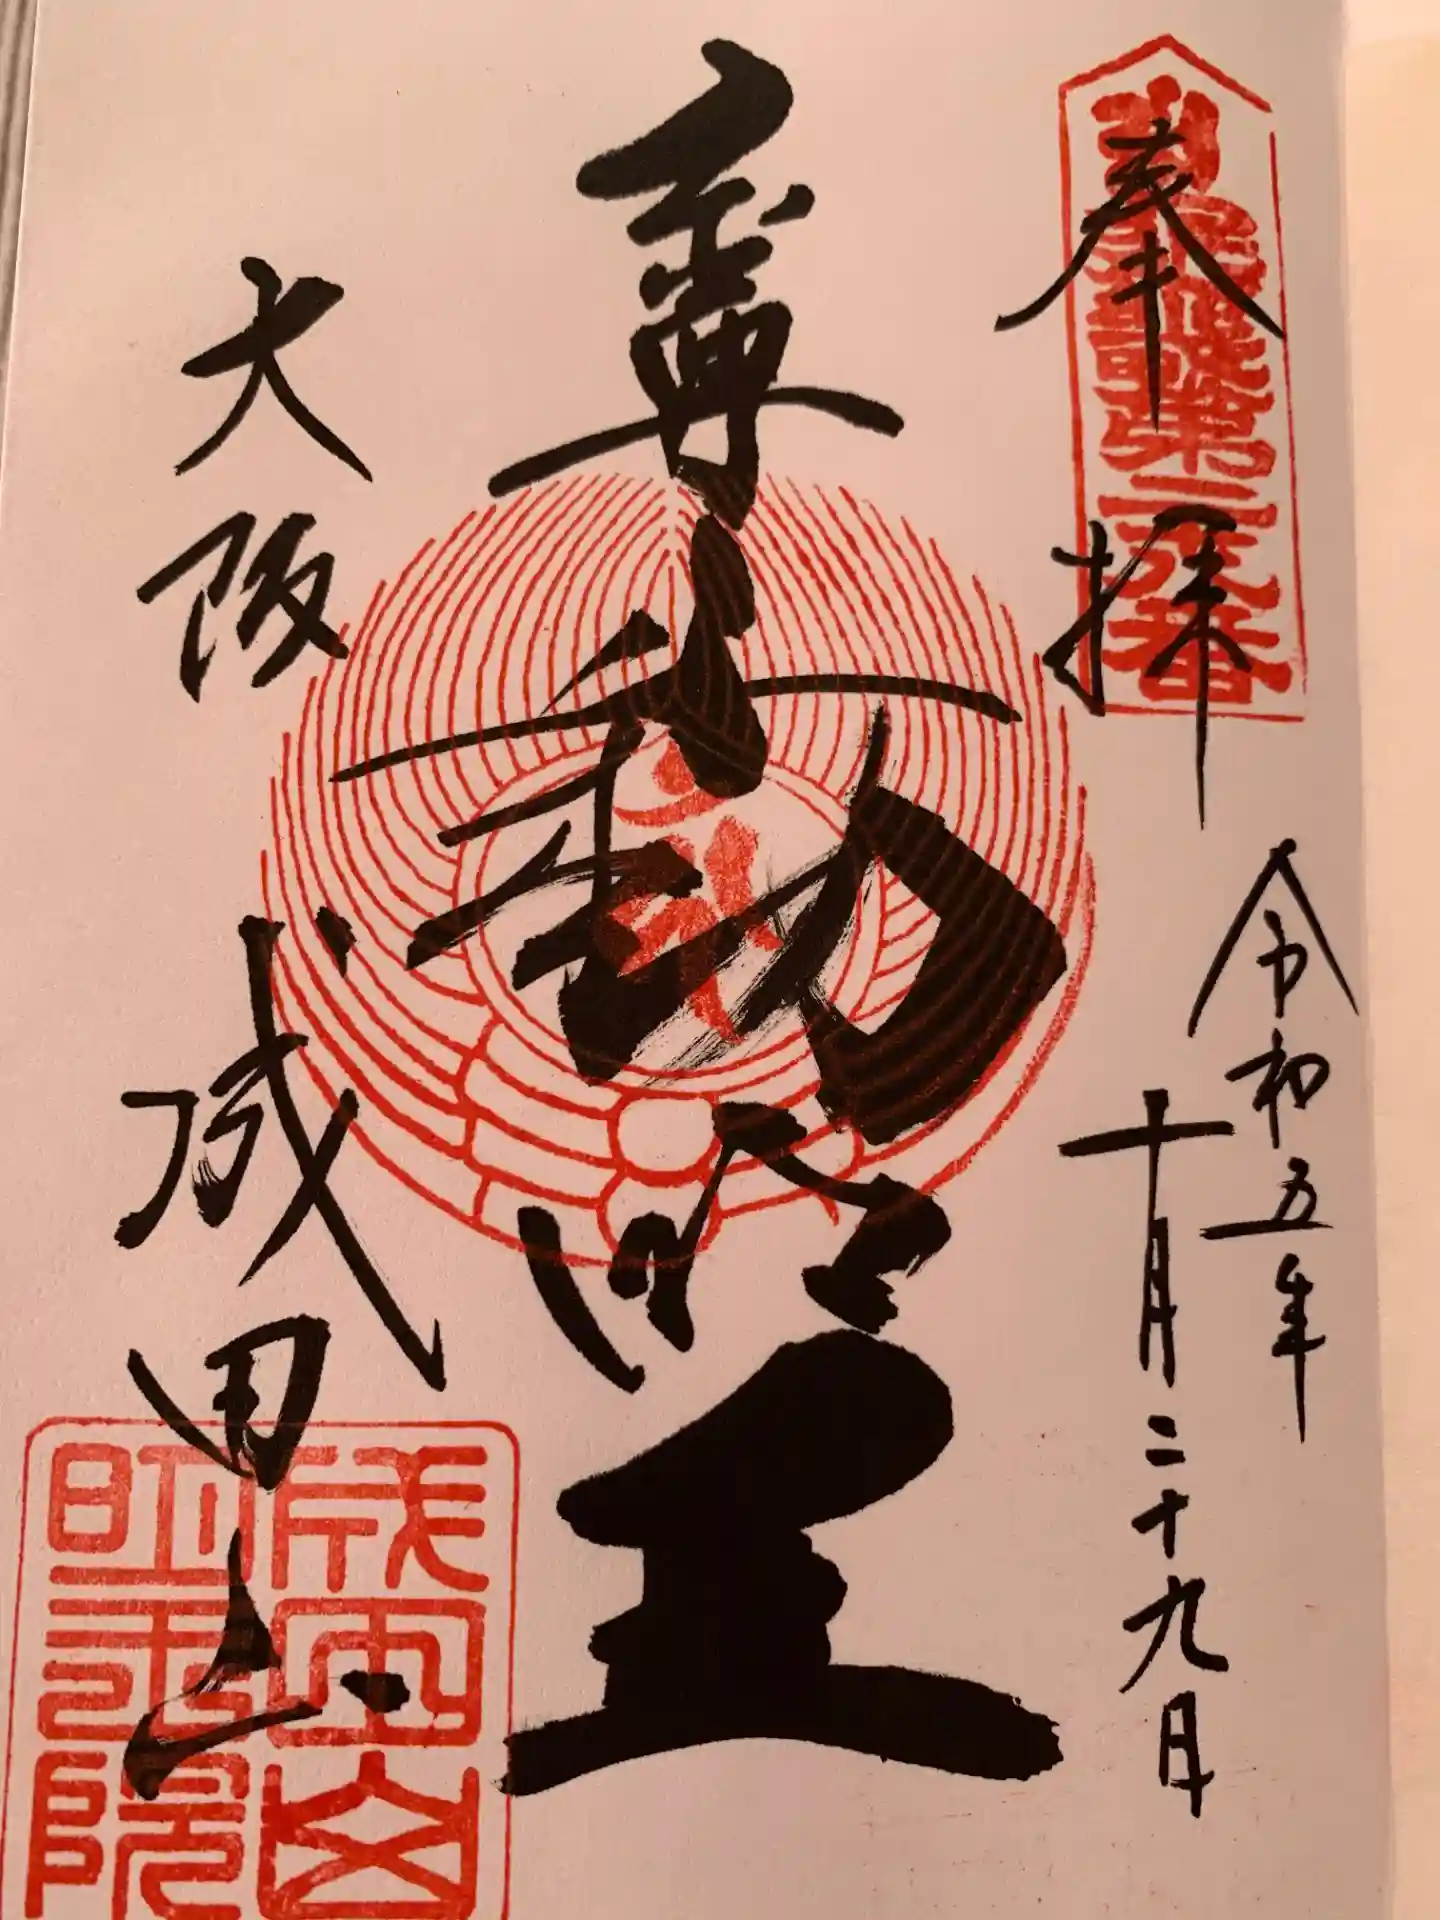 奉拝
令和五年
十月二十九日
尊不動明王
大阪成田山
成田山
明王院